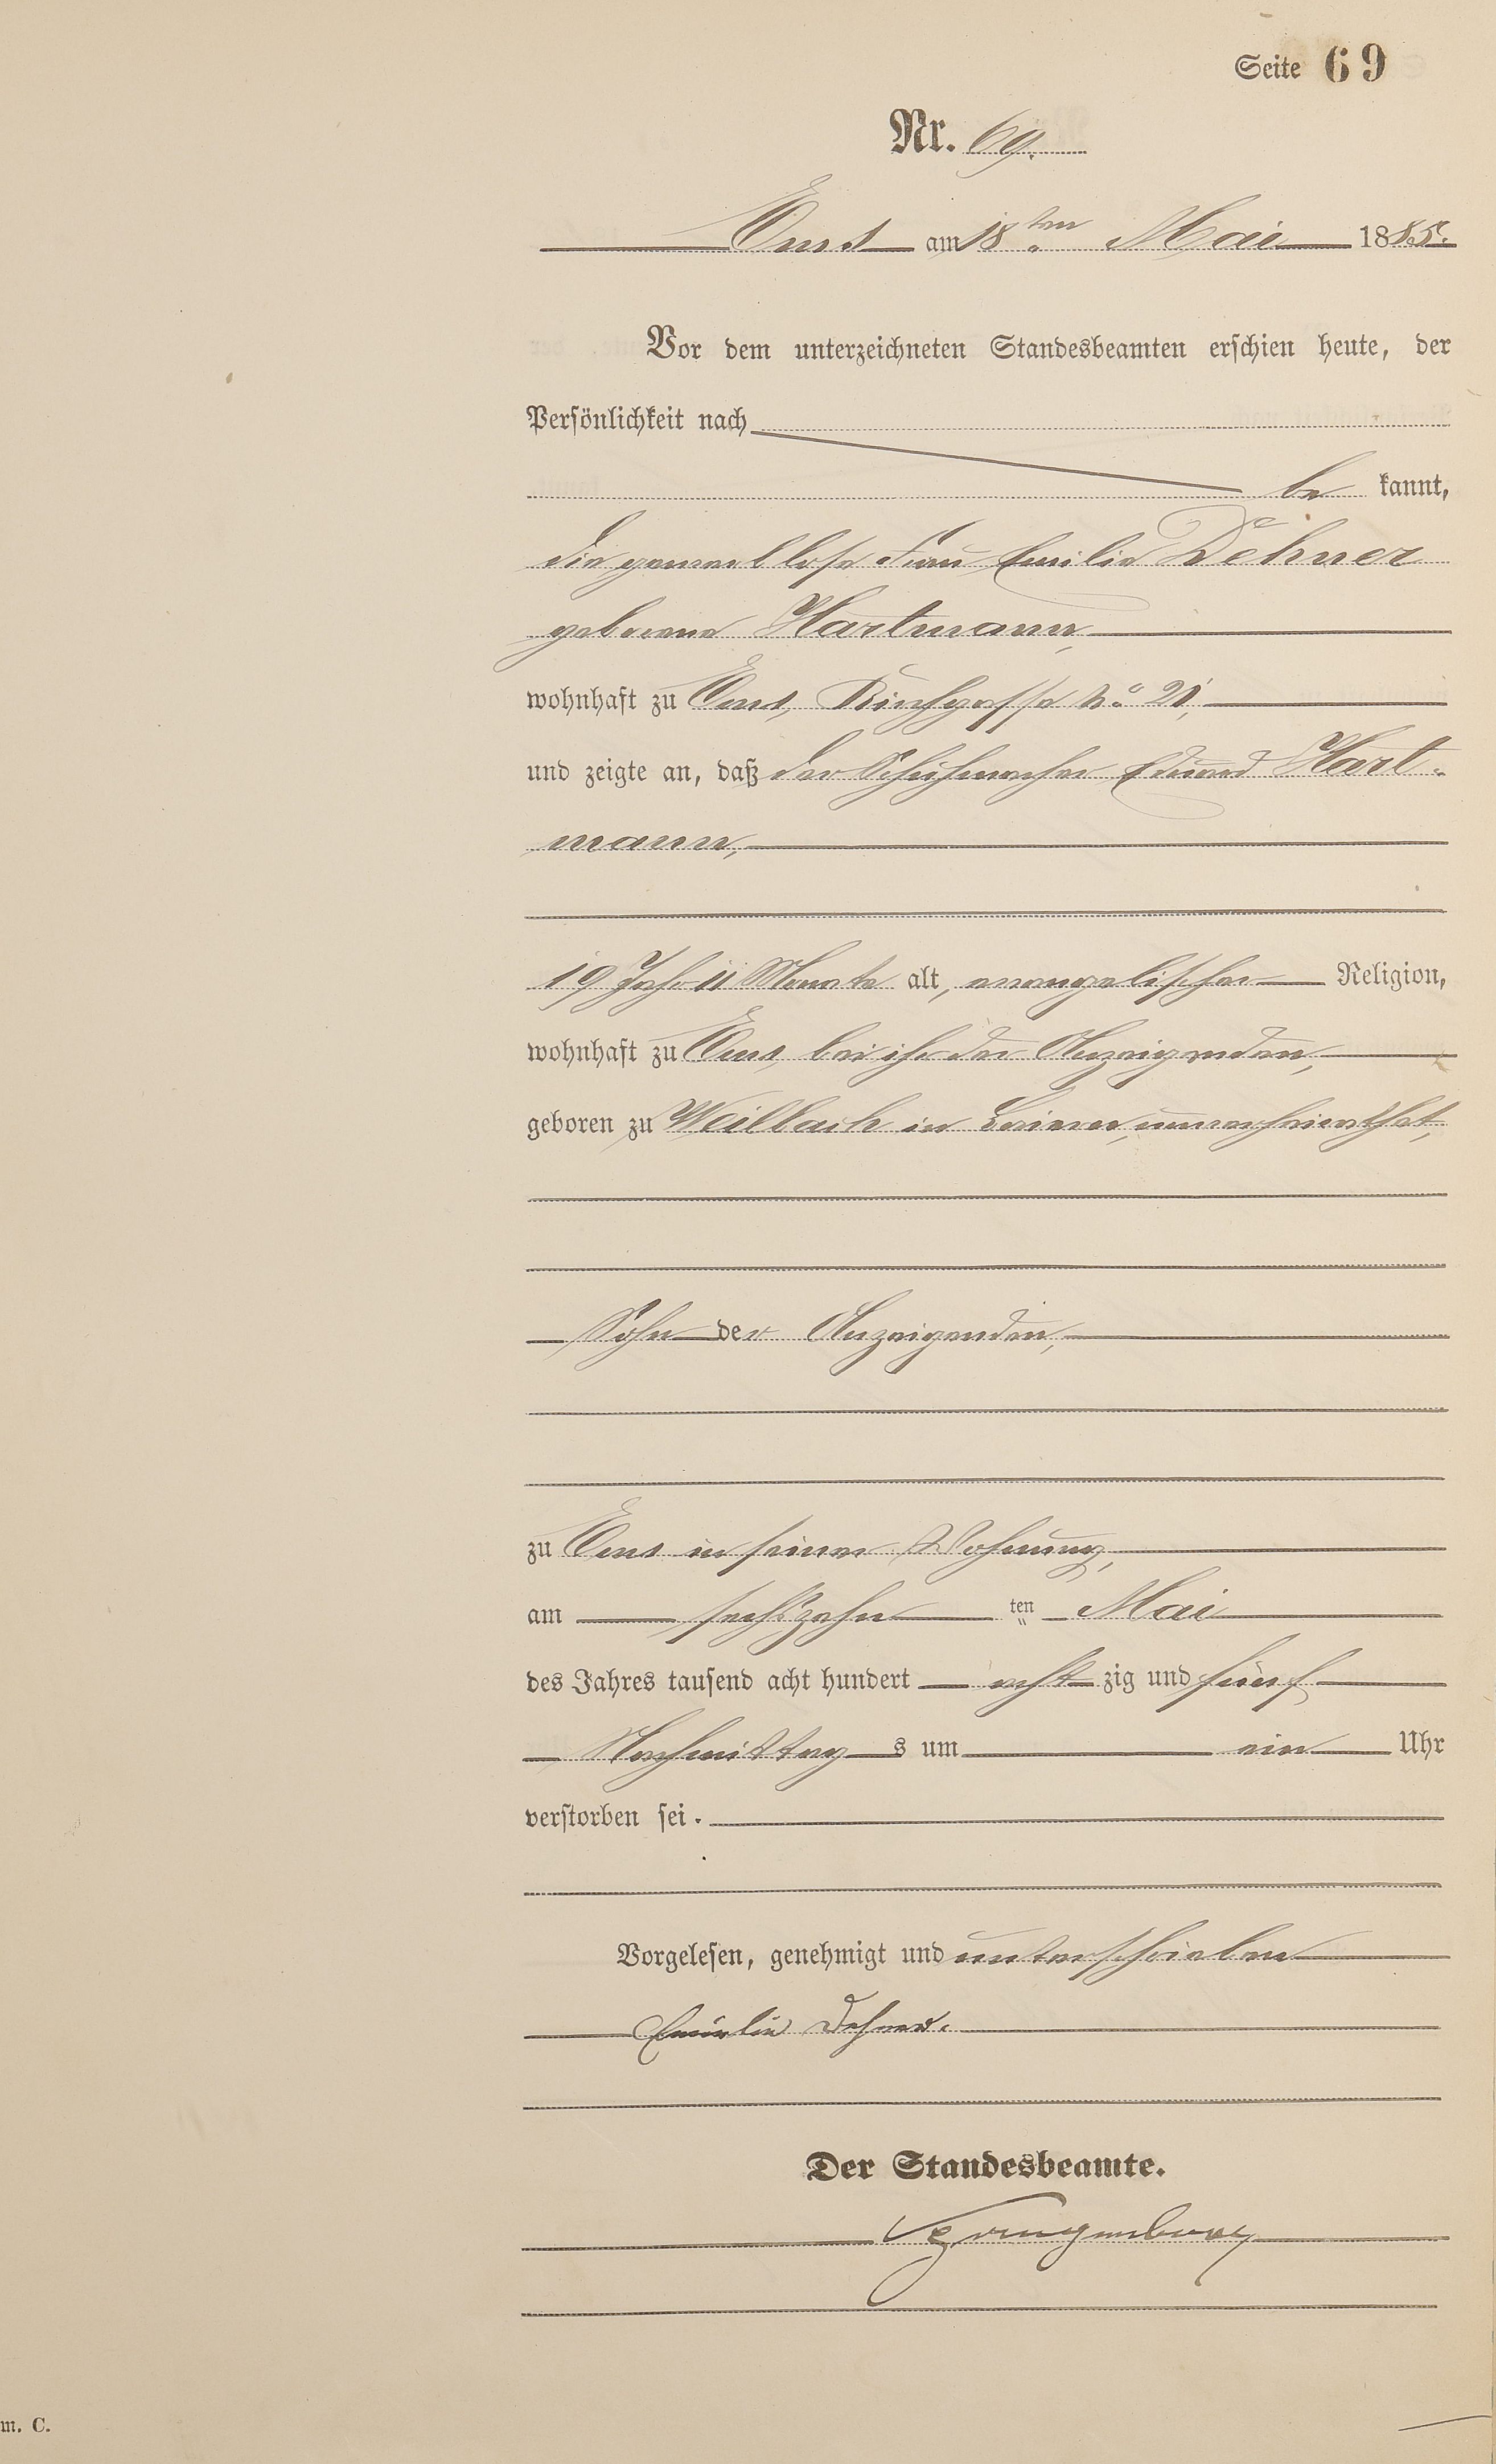 Seite 69
Nr. 69.
Ems am 18ten Mai 1885.
Vor dem unterzeichneten Standesbeamten erschien heute, der
Persönlichkeit nach
be kannt,
die gewerblose Frau Emilie Dehner
geborene Hartmann,
wohnhaft zu Ems, Kirchgasse No. 21,
und zeigte an, daß der Schuhmacher Eduard Hart-
mann,
19 Jahr 11 Monate alt, evangelischer Religion,
wohnhaft zu Ems, bei ihr der Anzeigenden,
geboren zu Weilbach in Baiern, unverheirathet,
Sohn der Anzeigenden,
zu Ems in seiner Wohnung,
am sechszehn ten Mai
des Jahres tausend acht hundert acht zig und fünf
Nachmittag s um ein Uhr
verstorben sei.
Vorgelesen, genehmigt und unterschrieben
Emilie Dehner.
Der Standesbeamte.
m. C.